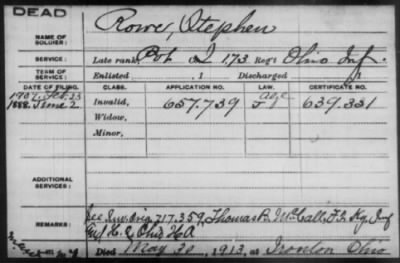 DEAD
NAME OF SOLDIER: Rowe, Stephen
SERVICE: Late rank, Pvt Co. I, 173, Reg't Ohio Inf.
TERM OF SERVICE: Enlisted , 1 Discharged , 1
DATE OF FILING. CLASS. APPLICATION NO. LAW. CERTIFICATE NO.
1907. Feb. 23 age
1888. June 2 Invalid, 657.739 J 639.331
Widow,
Minor,
ADDITIONAL SERVICES:
REMARKS: See Inv. Orig. 717.359, Thomas R. McCall, F, Ky. Inf
H. Ohio H A
Died May 30, 1913, at Ironton Ohio